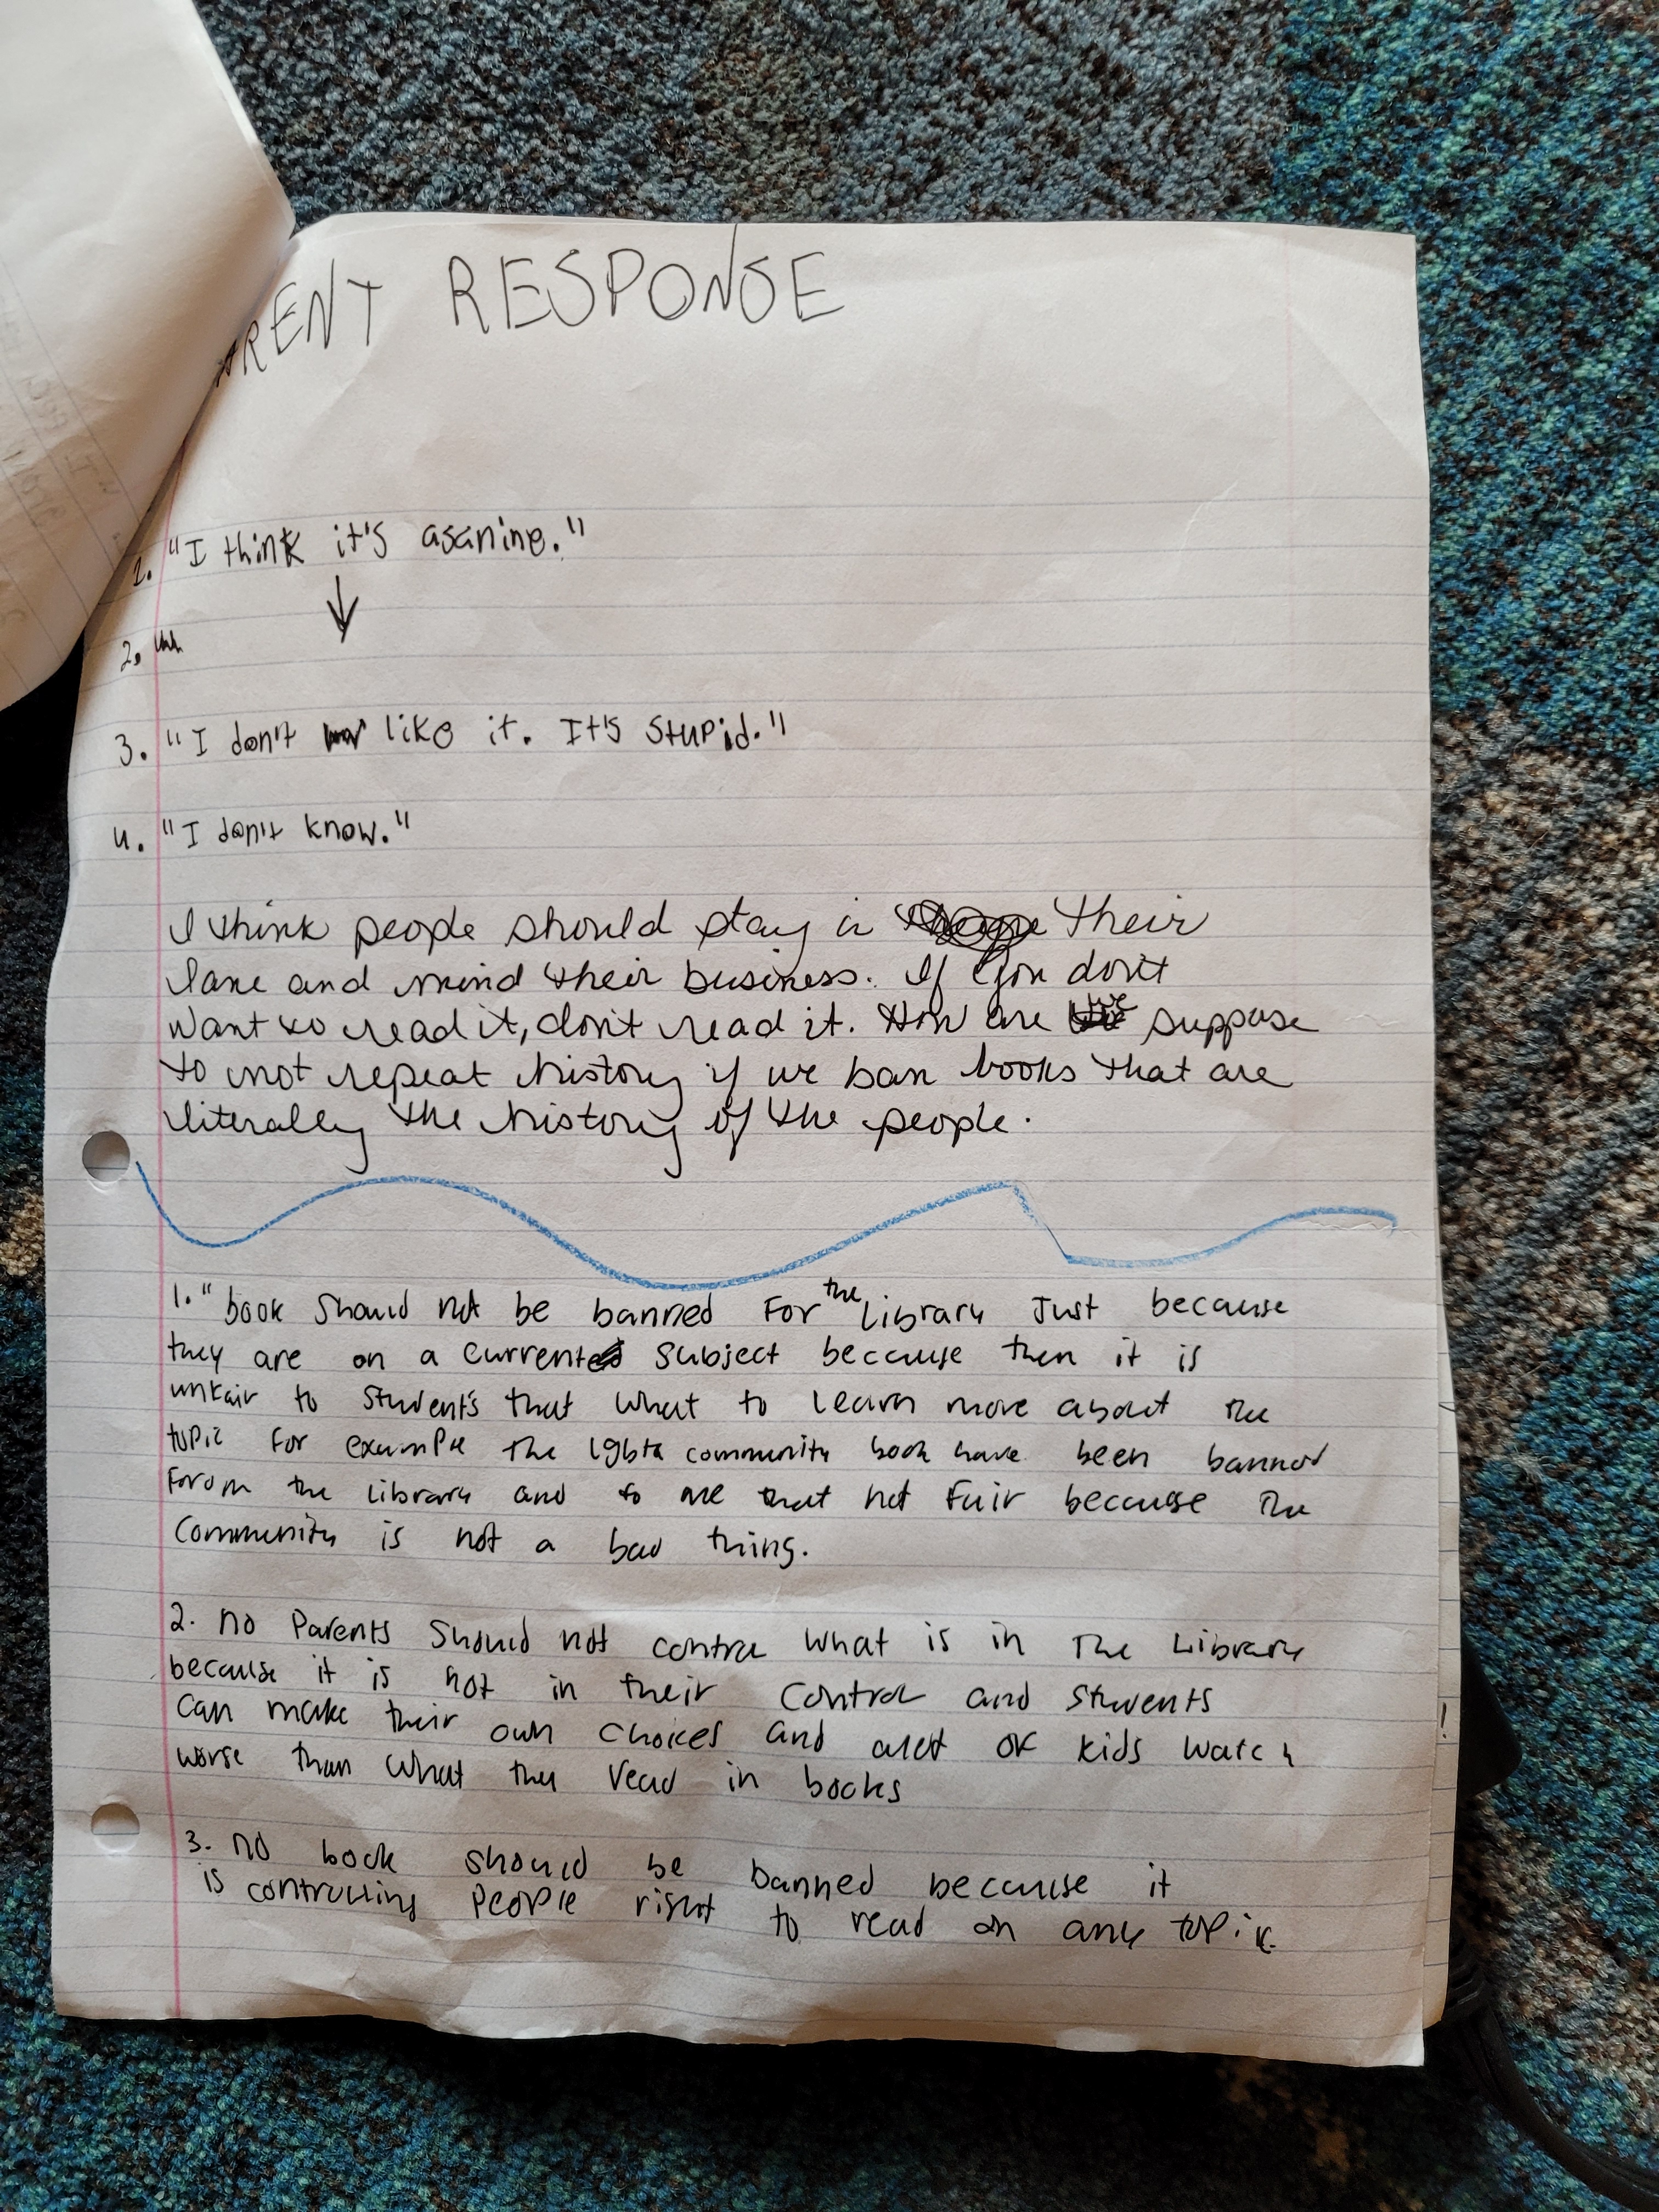 ARENT RESPONSE
1. "I think it's asanine."
2.
3. "I don't like it. It's stupid."
4. "I don't know."
I think people should stay in their
lane and mind their business. If you don't
want to read it, don't read it. How are we suppose
to not repeat history if we ban books that are
literally the history of the people.
1. "book should not be banned for the library Just because
they are on a current subject because then it is
unfair to student's that what to learn more about the
topic for example the lgbtq community book have been banned
forom the library and to me that not fair because the
community is not a bad thing.
2. no Parents should not control what is in the Library
because it is not in their control and students
can make their own choices and alot of kids watch
worse than what they read in books
3. no book should be banned because it
is controlling people right to read on any topic.